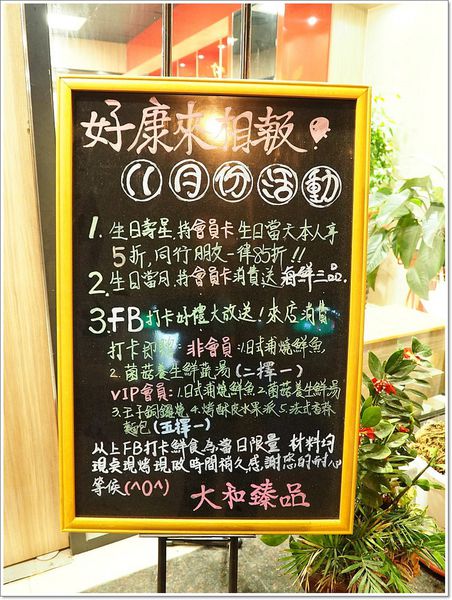 好康來相報
11月份活動
1. 生日壽星持會員卡生日當天本人享
5折,同行朋友一律85折!!
2. 生日當月,持會員卡消費送海鮮三品.
3.FB打卡好禮大放送!來店消費
打卡即贈:非會員:1.日式浦燒鮮魚
2.菌菇養生鮮蔬湯(二擇一)
VIP會員:1.日式浦燒鮮魚2.菌菇養生鮮湯
3.王子銅鑼燒4.烤酥皮水果派5.法式香蒜
麵包(五擇一)
以上FB打卡鮮食為當日限量 材料均
現桌現烤現做時間稍久感謝您的耐心
等侯(^O^)
大和臻品